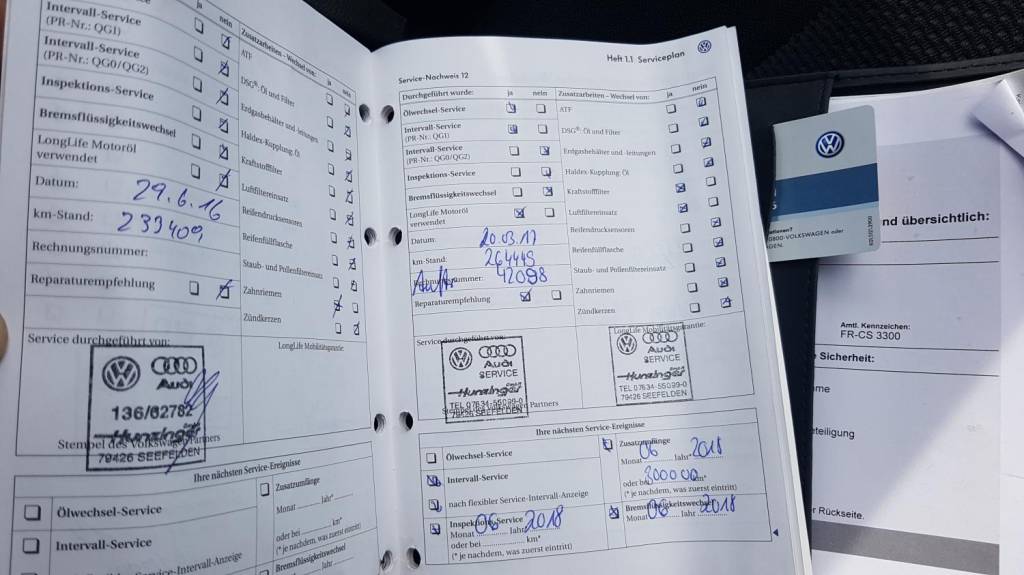 ja
nein
Intervall-Service
(PR-Nr.: QG1)
Intervall-Service
(PR-Nr.: QG0/QG2)
Inspektions-Service
Bremsflüssigkeitswechsel
LongLife Motoröl
verwendet
Datum:
29.6.16
km-Stand:
233409
Rechnungsnummer:
Reparaturempfehlung
Zusatzarbeiten – Wechsel von:
ja
nein
ATF
DSG®: Öl und Filter
Erdgasbehälter und -leitungen
Haldex-Kupplung: Öl
Kraftstofffilter
Luftfiltereinsatz
Reifendrucksensoren
Reifenfüllflasche
Staub- und Pollenfiltereinsatz
Zahnriemen
Zündkerzen
Service durchgeführt von:
LongLife Mobilitätsgarantie
Audi
136/02782
Hunzinger
Stempel des Volkswagen Partners
79426 SEEFELDEN
Ihre nächsten Service-Ereignisse
Ölwechsel-Service
Intervall-Service
nach flexibler Service-Intervall-Anzeige
Zusatzumfänge
Monat
Jahr*
oder bei
km*
(* je nachdem, was zuerst eintritt)
Bremsflüssigkeitswechsel
Heft 1.1 Serviceplan
Service-Nachweis 12
Durchgeführt wurde:
ja
nein
Ölwechsel-Service
Intervall-Service
(PR-Nr.: QG1)
Intervall-Service
(PR-Nr.: QG0/QG2)
Inspektions-Service
Bremsflüssigkeitswechsel
LongLife Motoröl
verwendet
Datum:
20.03.17
km-Stand:
264449
Auftr.
42098
Reparaturempfehlung
Zusatzarbeiten – Wechsel von:
ja
nein
ATF
DSG®: Öl und Filter
Erdgasbehälter und -leitungen
Haldex-Kupplung: Öl
Kraftstofffilter
Luftfiltereinsatz
Reifendrucksensoren
Reifenfüllflasche
Staub- und Pollenfiltereinsatz
Zahnriemen
Zündkerzen
Service durchgeführt von:
Audi
SERVICE
Hunzinger
TEL 07634-55099-0
79426 SEEFELDEN
LongLife Mobilitätsgarantie:
Audi
SERVICE
Hunzinger
TEL 07634-55099-0
79426 SEEFELDEN
Ihre nächsten Service-Ereignisse
Ölwechsel-Service
Intervall-Service
nach flexibler Service-Intervall-Anzeige
Inspektions-Service
Monat 06 Jahr 2018
oder bei km*
(* je nachdem, was zuerst eintritt)
Zusatzumfänge
Monat 06 Jahr* 2018
oder bei 300000 km*
(* je nachdem, was zuerst eintritt)
Bremsflüssigkeitswechsel
Monat 06 Jahr 2018
0800-VOLKSWAGEN oder
nd übersichtlich:
Amtl. Kennzeichen:
FR-CS 3300
Sicherheit:
eteiligung
r Rückseite.